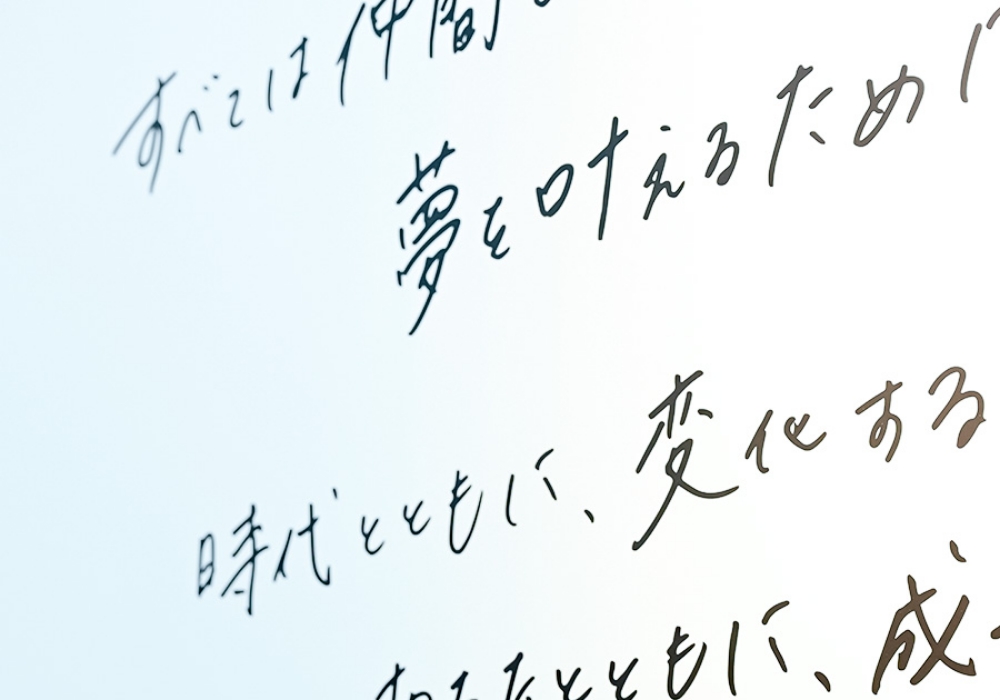 すべては仲間
夢を叶えるために
時代とともに、変化する
あなたとともに、成